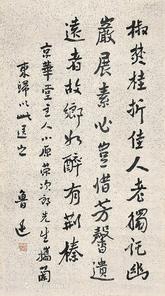 椒焚桂折佳人老獨託幽
巖展素心豈惜芳馨遺
遠者故鄉如醉有荊榛
京華堂主人小原榮次郎先生攜蘭
東歸以此送之
魯迅